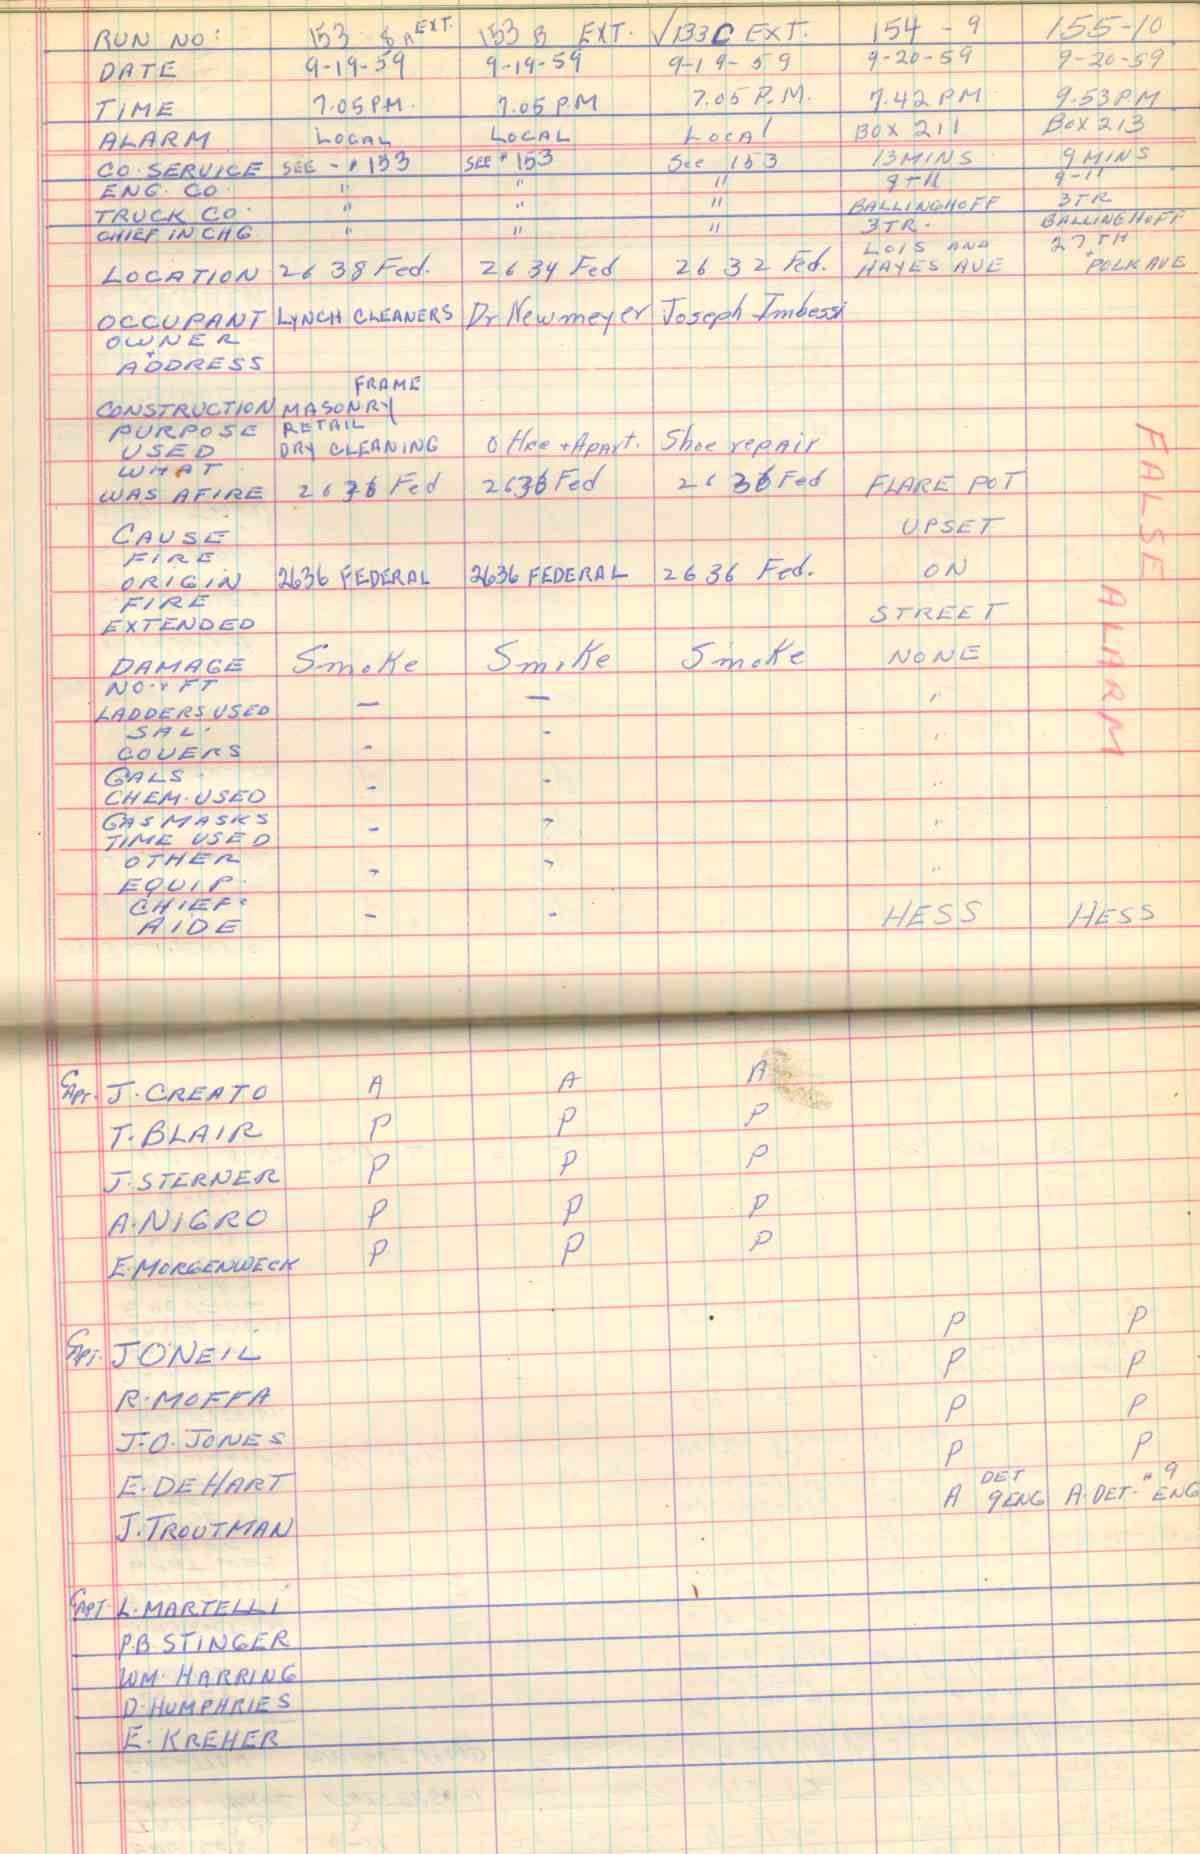 RUN NO: 153 8A EXT. 153 B EXT. √133C EXT. 154 - 9 155-10
DATE 9-19-59 9-19-59 9-19-59 9-20-59 9-20-59
TIME 7.05 PM. 7.05 P.M 7.05 P.M. 7.42 PM 9.53 P.M
ALARM LOCAL LOCAL Local BOX 211 BOX 213
CO. SERVICE SEE - # 153 SEE # 153 See 153 13 MINS 9 MINS
ENG. CO. " " " 9-11 9-11
TRUCK CO. " " " BALLINGHOFF 3TR
CHIEF IN CHG. " " " 3TR. BALLINGHOFF
LOCATION 2638 Fed. 2634 Fed 2632 Fed. LOIS AND HAYES AVE 27TH + POLK AVE
OCCUPANT LYNCH CLEANERS Dr Newmeyer Joseph Imbessi
OWNER
+
ADDRESS
FRAME
CONSTRUCTION MASONRY
PURPOSE RETAIL
USED DRY CLEANING Office + Apart. Shoe repair
WHAT
WAS AFIRE 2636 Fed 2636 Fed 2636 Fed FLARE POT
CAUSE UPSET
FIRE
ORIGIN 2636 FEDERAL 2636 FEDERAL 2636 Fed. ON
FIRE
EXTENDED STREET
DAMAGE Smoke Smoke Smoke NONE
NO. + FT
LADDERS USED — — "
SAL.
COVERS - - "
GALS.
CHEM. USED - - "
GAS MASKS
TIME USED - - "
OTHER
EQUIP. - - "
CHIEF.
AIDE - - HESS HESS
FALSE ALARM
CAPT. J. CREATO A A A
T. BLAIR P P P
J. STERNER P P P
A. NIGRO P P P
E. MORGENWECK P P P
CAPT. J O'NEIL P P
R. MOFFA P P
J. O. JONES P P
E. DEHART P P
J. TROUTMAN A DET 9 ENG A. DET. # 9 ENG
CAPT. L. MARTELLI
P.B STINGER
WM. HARRING
D. HUMPHRIES
E. KREHER